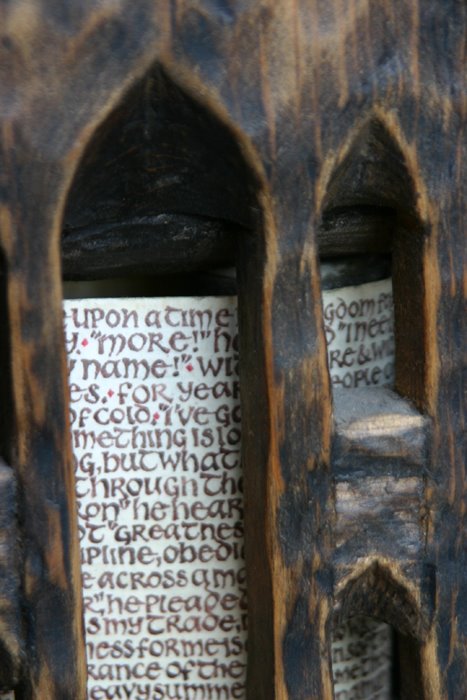 upon a time
y. "more!" he
name!". wi
es. for year
of cold. "i've go
mething is lo
g, but what
through the
ron" he hear
"greatnes
ipline, obedi
e across a ma
r", he pleaded
s my trade,
ness for me is
rance of the
eavy summe
gdom f
"i net
re & wi
eople